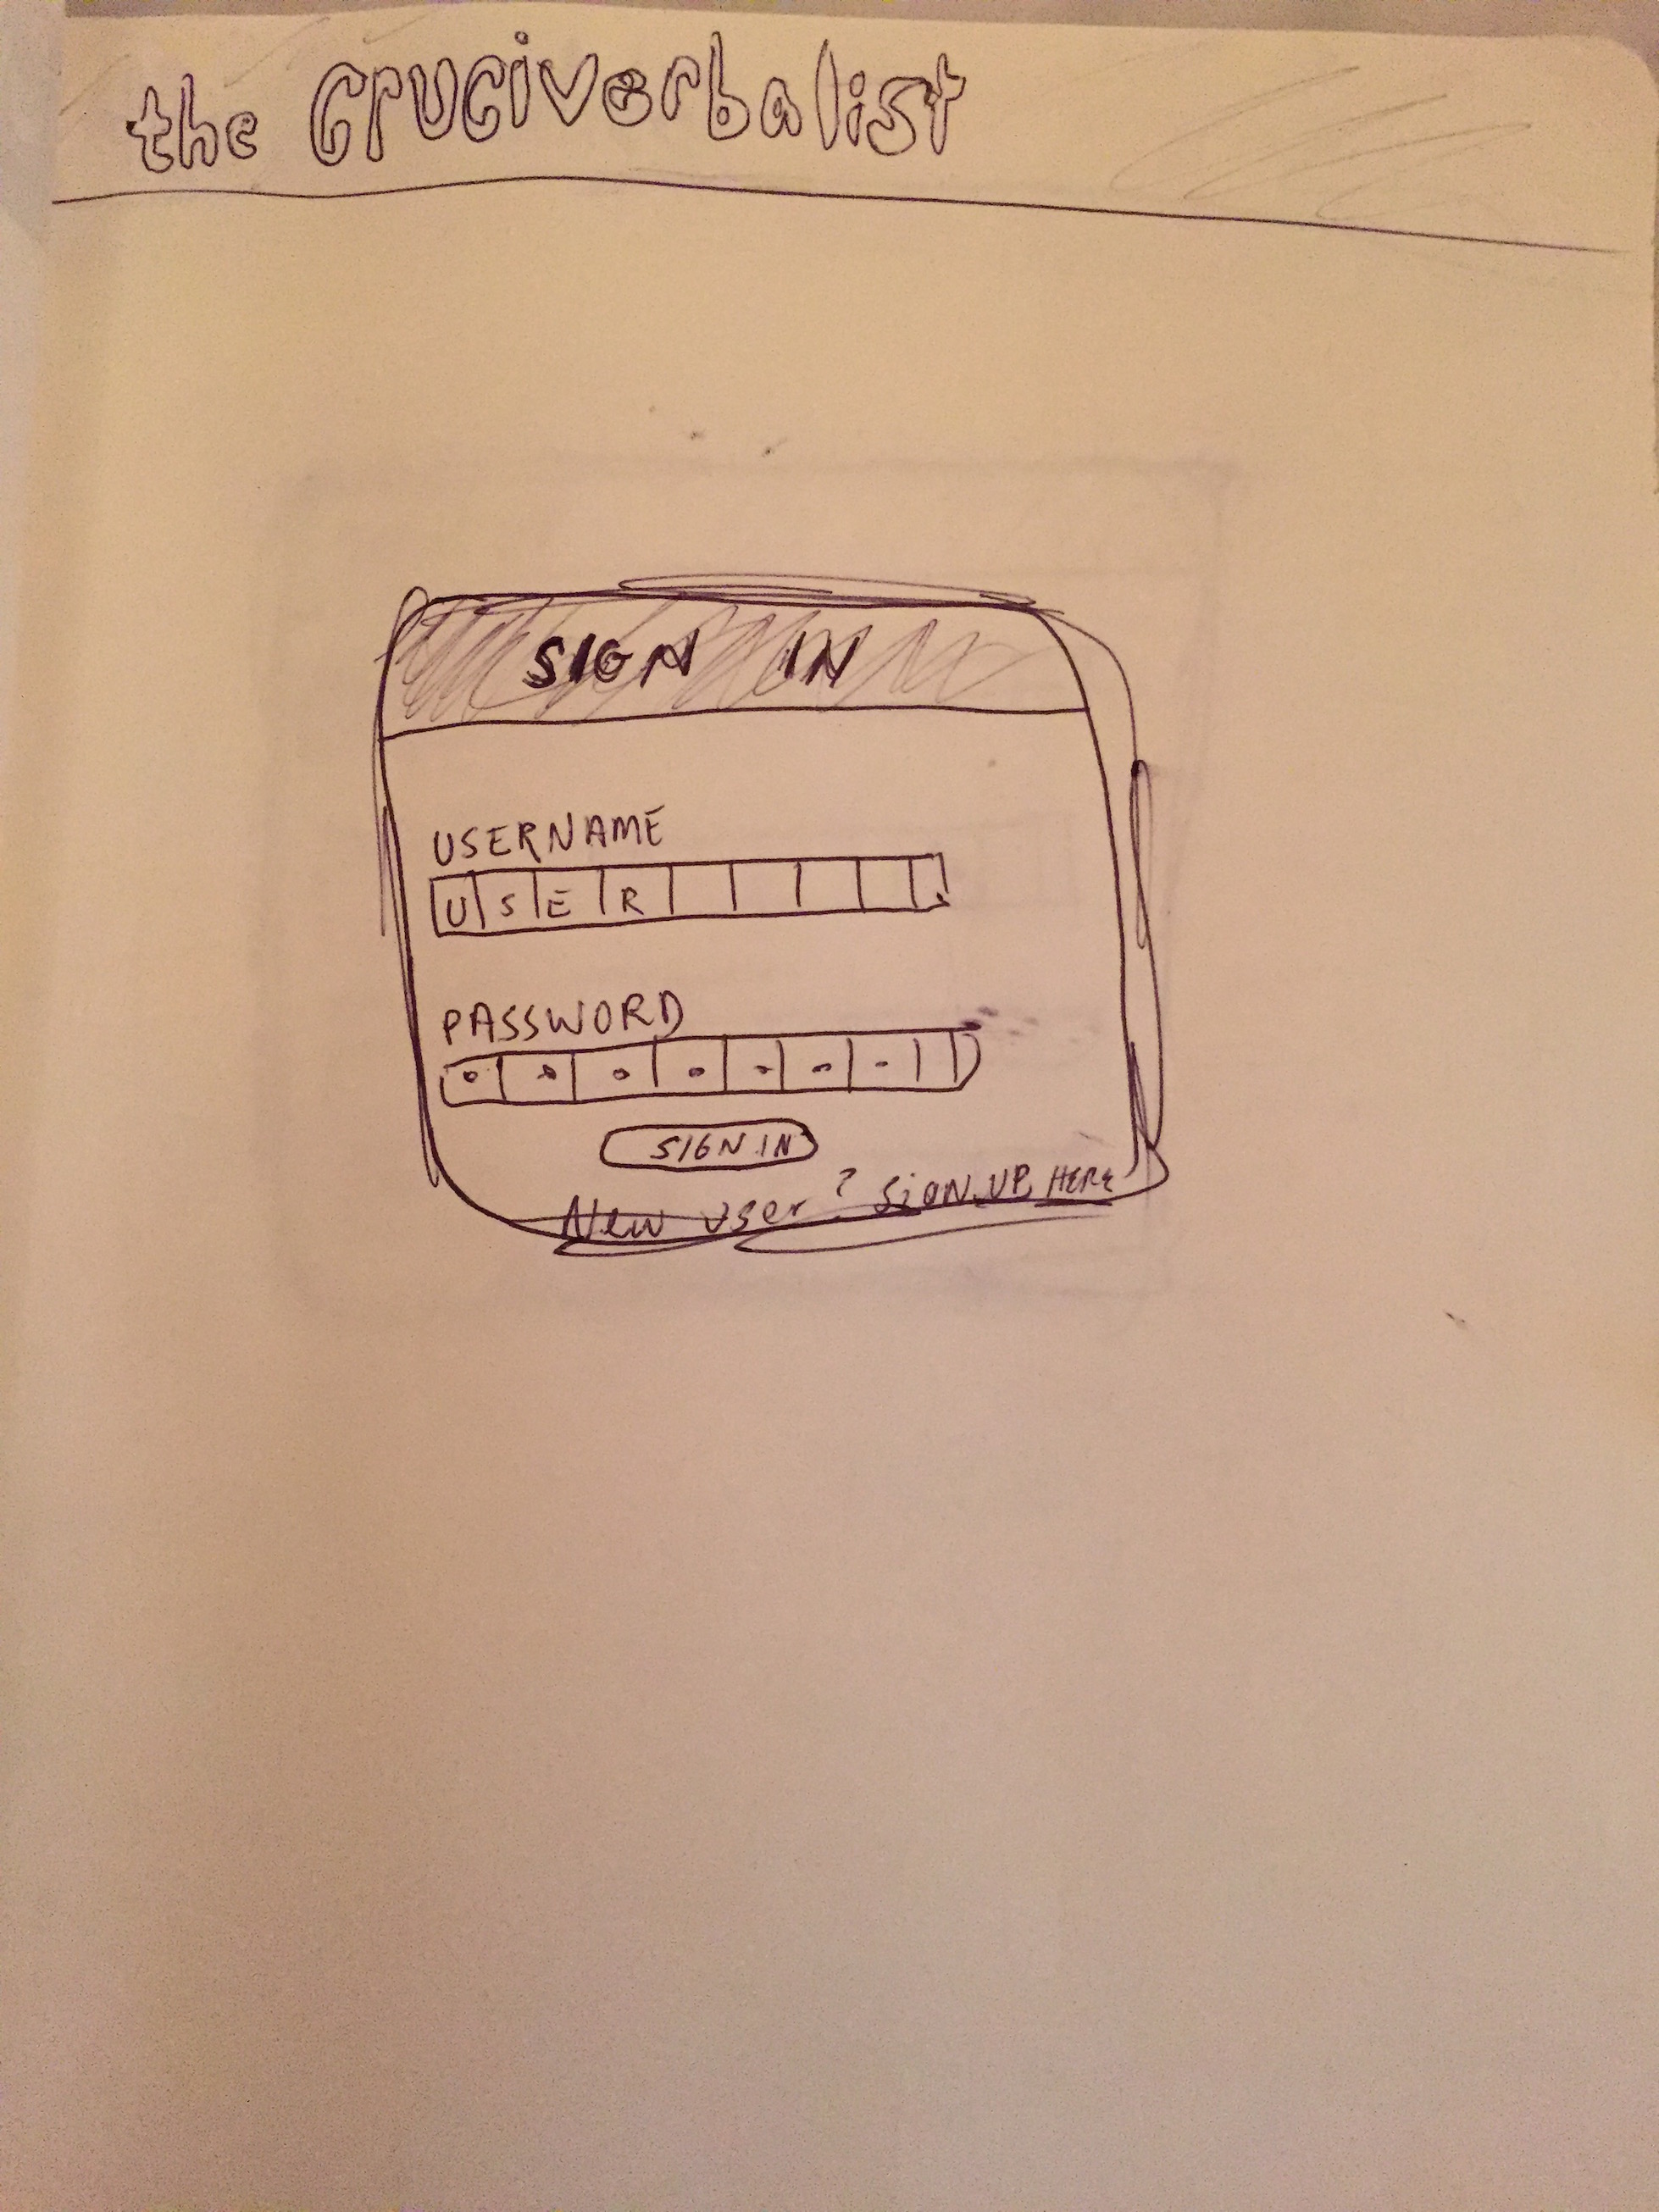 the Cruciverbalist
SIGN IN
USERNAME
USER
PASSWORD
SIGN IN
New user? SIGN UP HERE